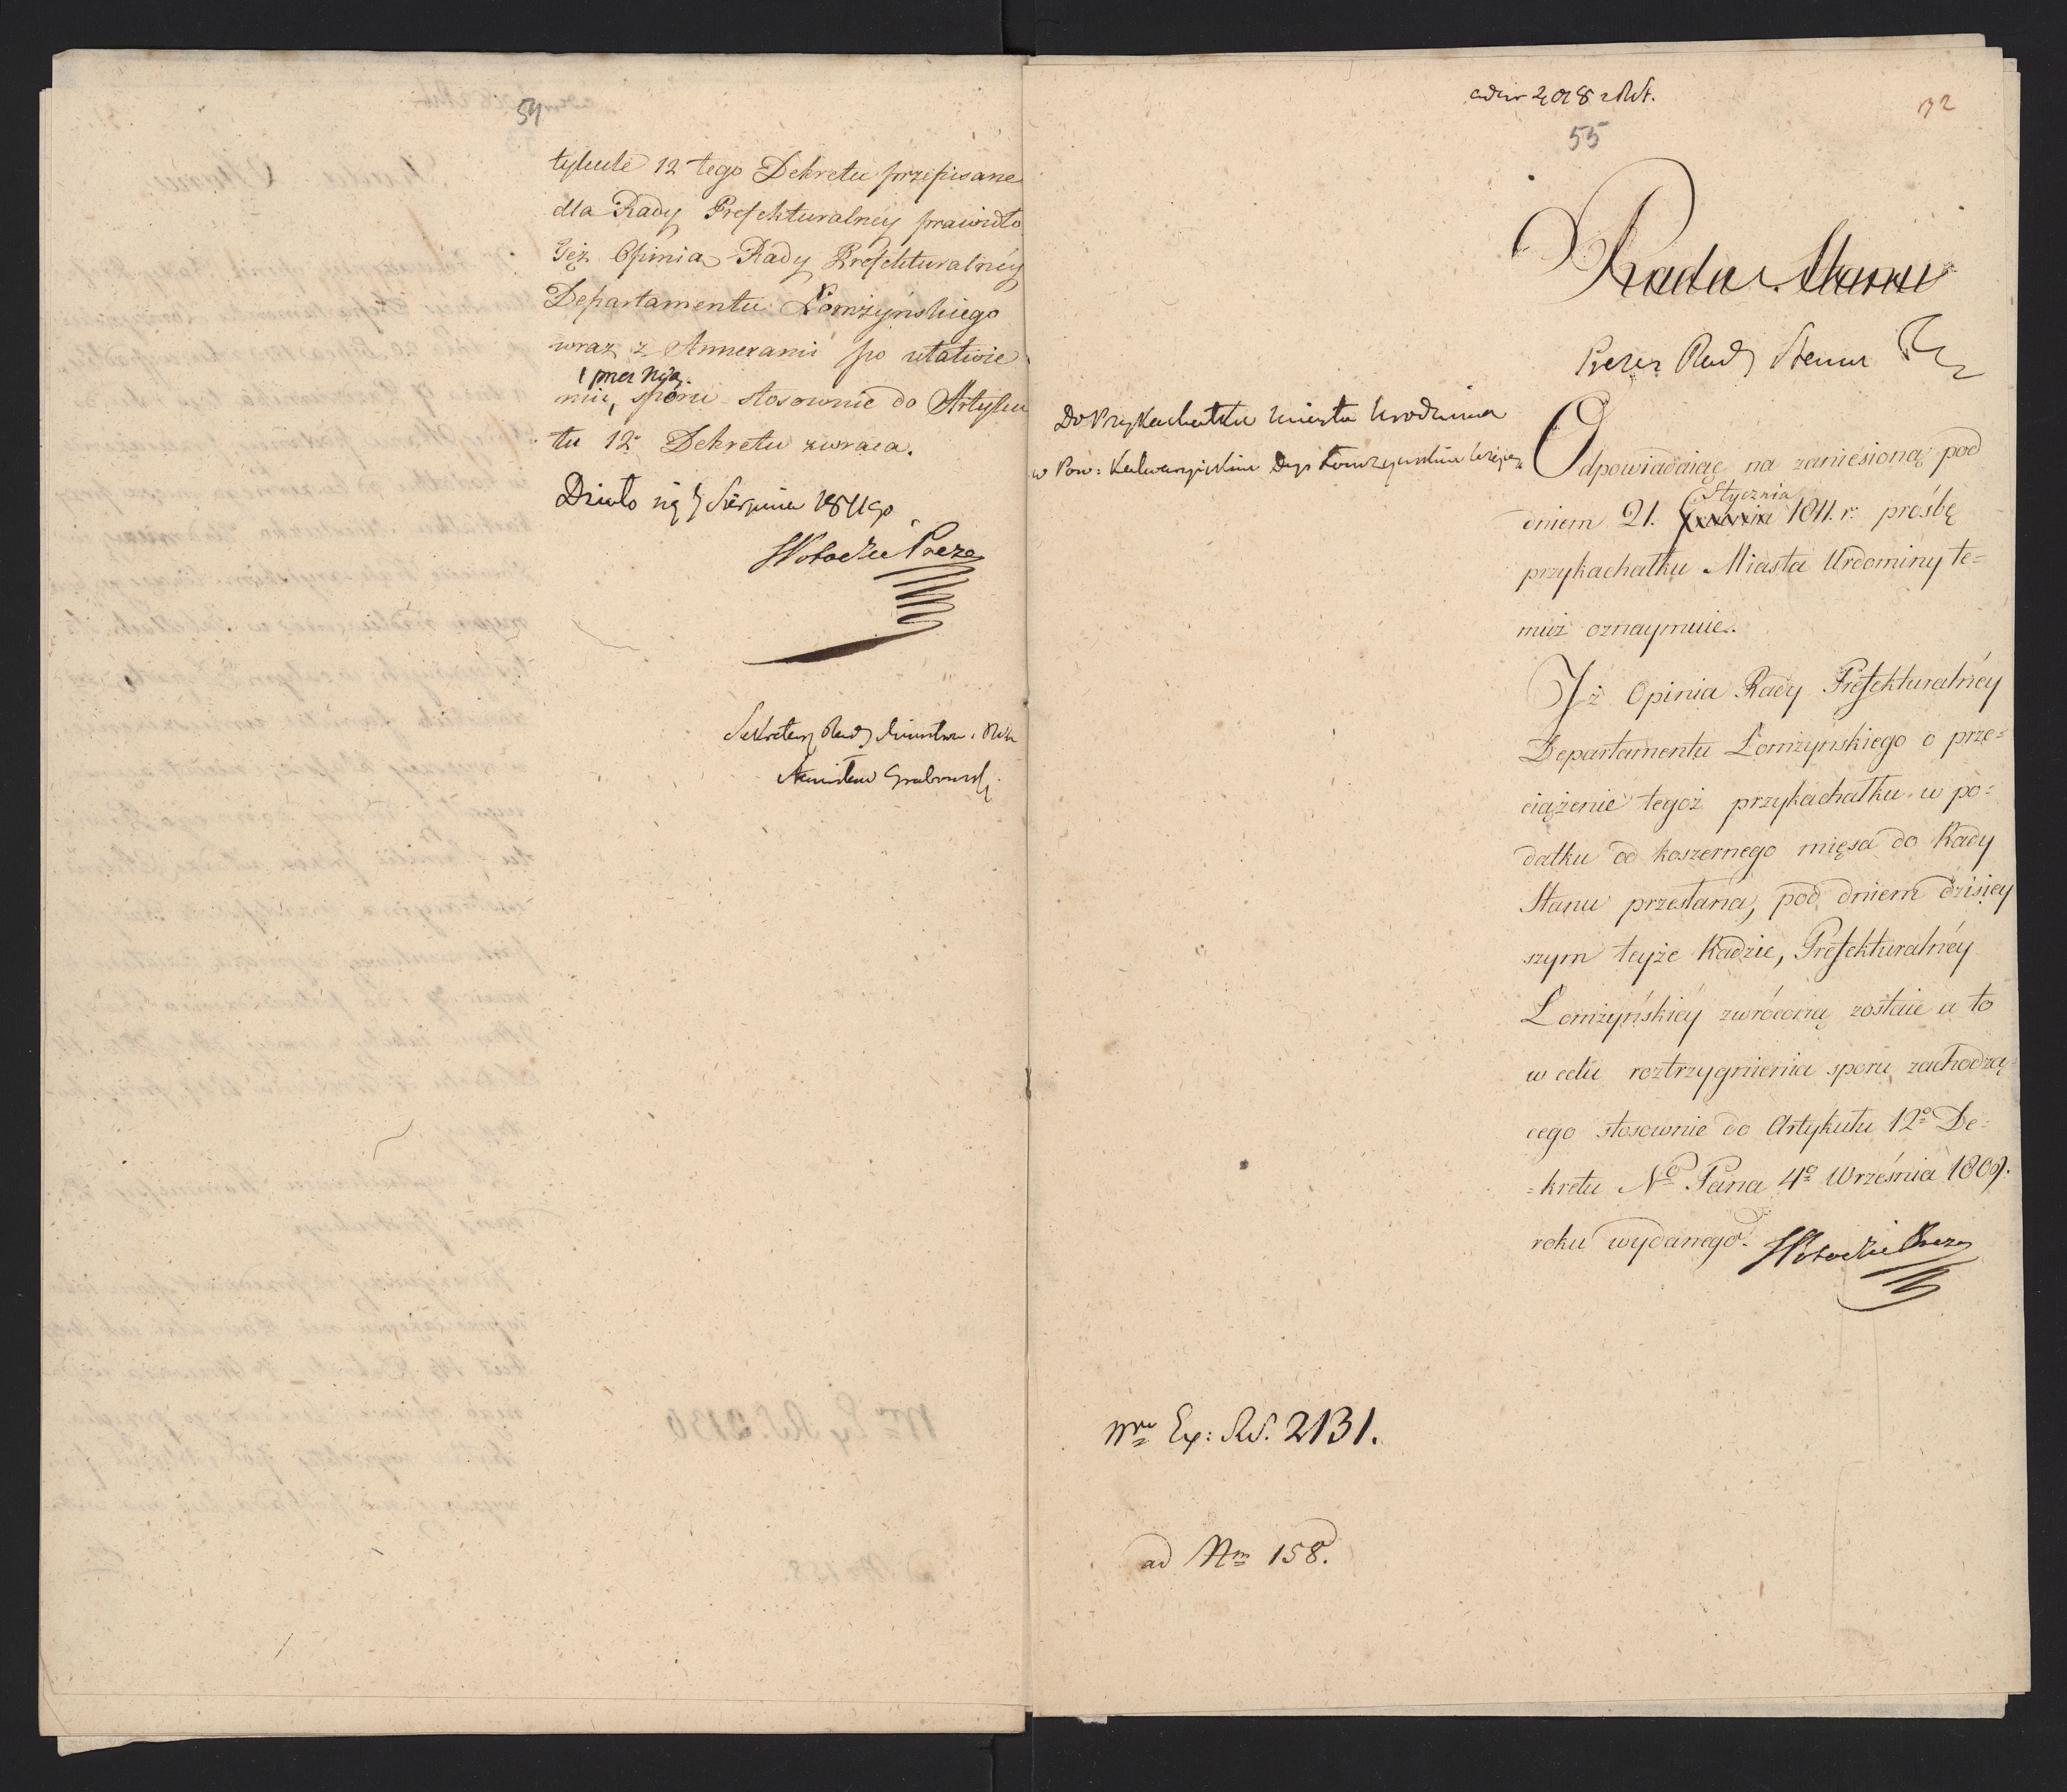 54
tykule 12 tego Dekretu przepisane
dla Rady Prefekturalney prawidło
Jż Opinia Rady Prefekturalney
Departamentu Łomżyńskiego
wraz z Annexami po ułatwie
niu, sporu stosownie do Artyku
łu 12º Dekretu zwraca.
Działo się Sierpnia 1811go
Sekretarz Rady
Stanisław Grabowski
2018
55
Rada Stanu
Prezes Rady Stanu
Do Przykachałku Miasta Urodmina
w Pow: Kalwaryiskim Dep Łomżyńskim
Odpowiadaiąc na zaniesioną pod
Stycznia
dniem 21. 1811. r. prośbę
przykachałku Miasta Urdominy te=
muż oznaymuie.
Jż Opinia Rady Prefekturalney
Departamentu Łomżynskiego o prze=
ciążenie tegoż przykachałku w po=
datku od koszernego mięsa do Rady
Stanu przesłana, pod dniem dzisiey
szym teyże Radzie, Prefekturalney
Łomżyńskiey zwróconą zostaie a to
w celu roztrzygnienia sporu zachodzą=
cego stosownie do Artykułu 12º De=
=kretu Nº Pana 4º Września 1809.
roku wydanego.
Nro Ex: RS. 2131.
ad Nm 158.